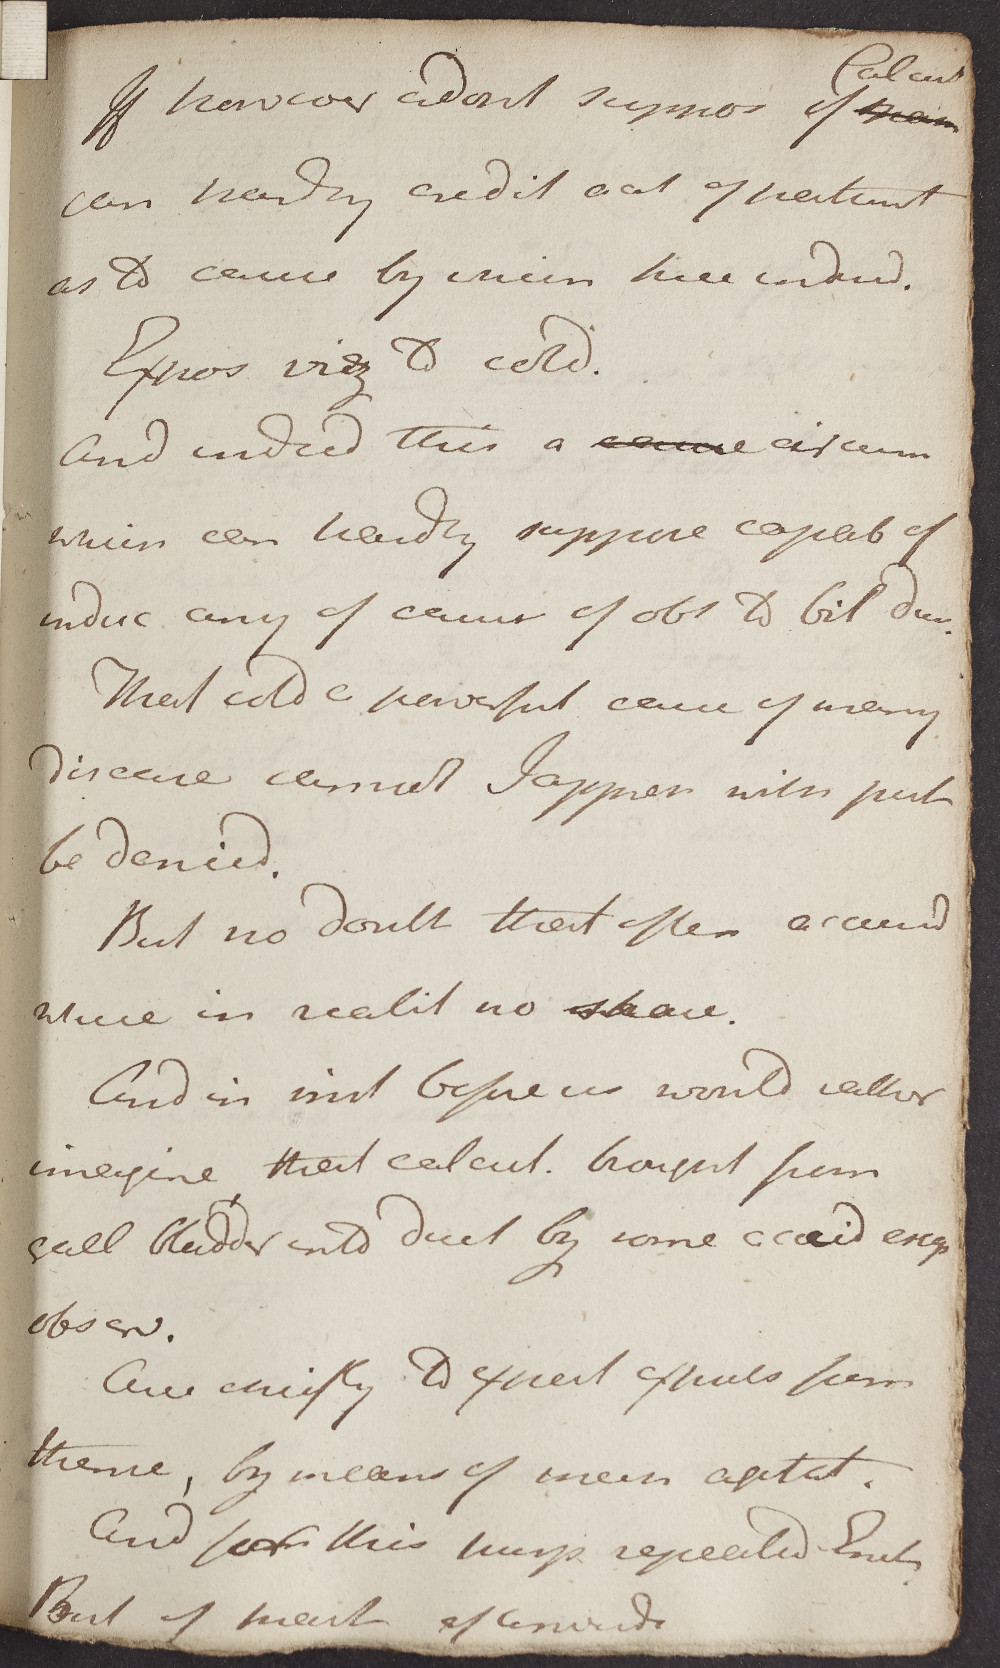 If however admit suppos of Calcul
can hardly credit acct of patient
as to cause by which here induced.
Expos viz to cold.
And indeed this a cause circum
which can hardly suppose capab of
induc any of causes of obs to bil duc.
That cold a powerful cause of many
disease cannot I apprehen with just
be denied.
But no doubt that often accused
where in realit no share.
And in inst before us would rather
imagine that calcul. brought from
gall bladder into duct by some accid
observ.
Are chiefly to expect expuls from
thence, by means of mech agitat.
And for this purp repeated Emet.
But of heart afterwards